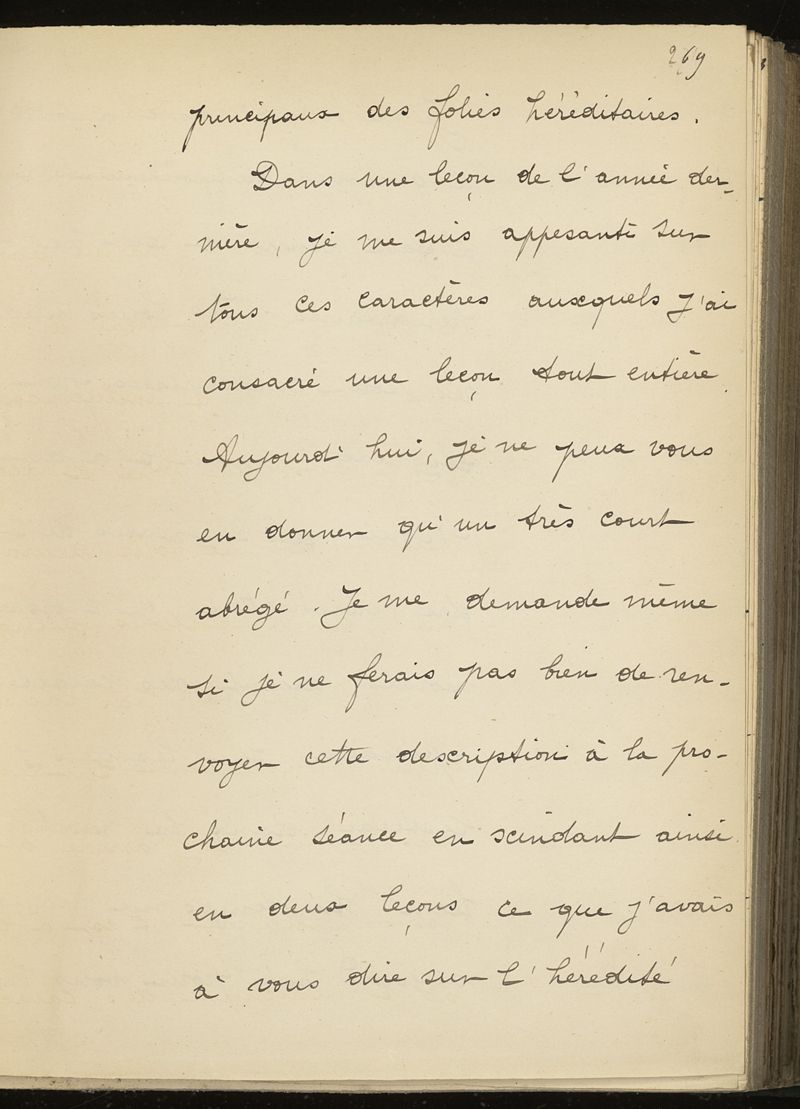 269
principaux des folies héréditaires.
Dans une leçon de l'année der-
nière, je me suis appesanti sur
tous ces caractères auxquels j'ai
consacré une leçon tout entière.
Aujourd'hui, je ne peux vous
en donner qu'un très court
abrégé. Je me demande même
si je ne ferais pas bien de ren-
voyer cette description à la pro-
chaine séance en scindant ainsi
en deux leçons ce que j'avais
à vous dire sur l'hérédité